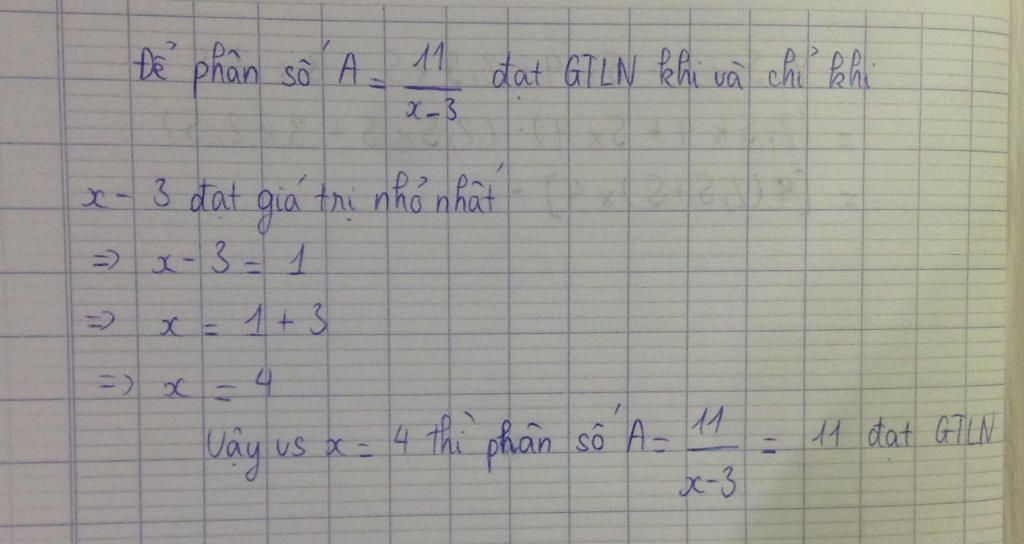 Để phân số A = 11/(x-3) đạt GTLN khi và chỉ khi
x - 3 đạt giá trị nhỏ nhất
=> x - 3 = 1
=> x = 1 + 3
=> x = 4
Vậy vs x = 4 thì phân số A = 11/(x-3) = 11 đạt GTLN